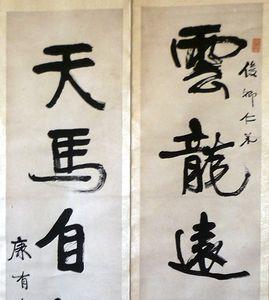 俊卿仁兄
雲龍遠
天馬自
康有